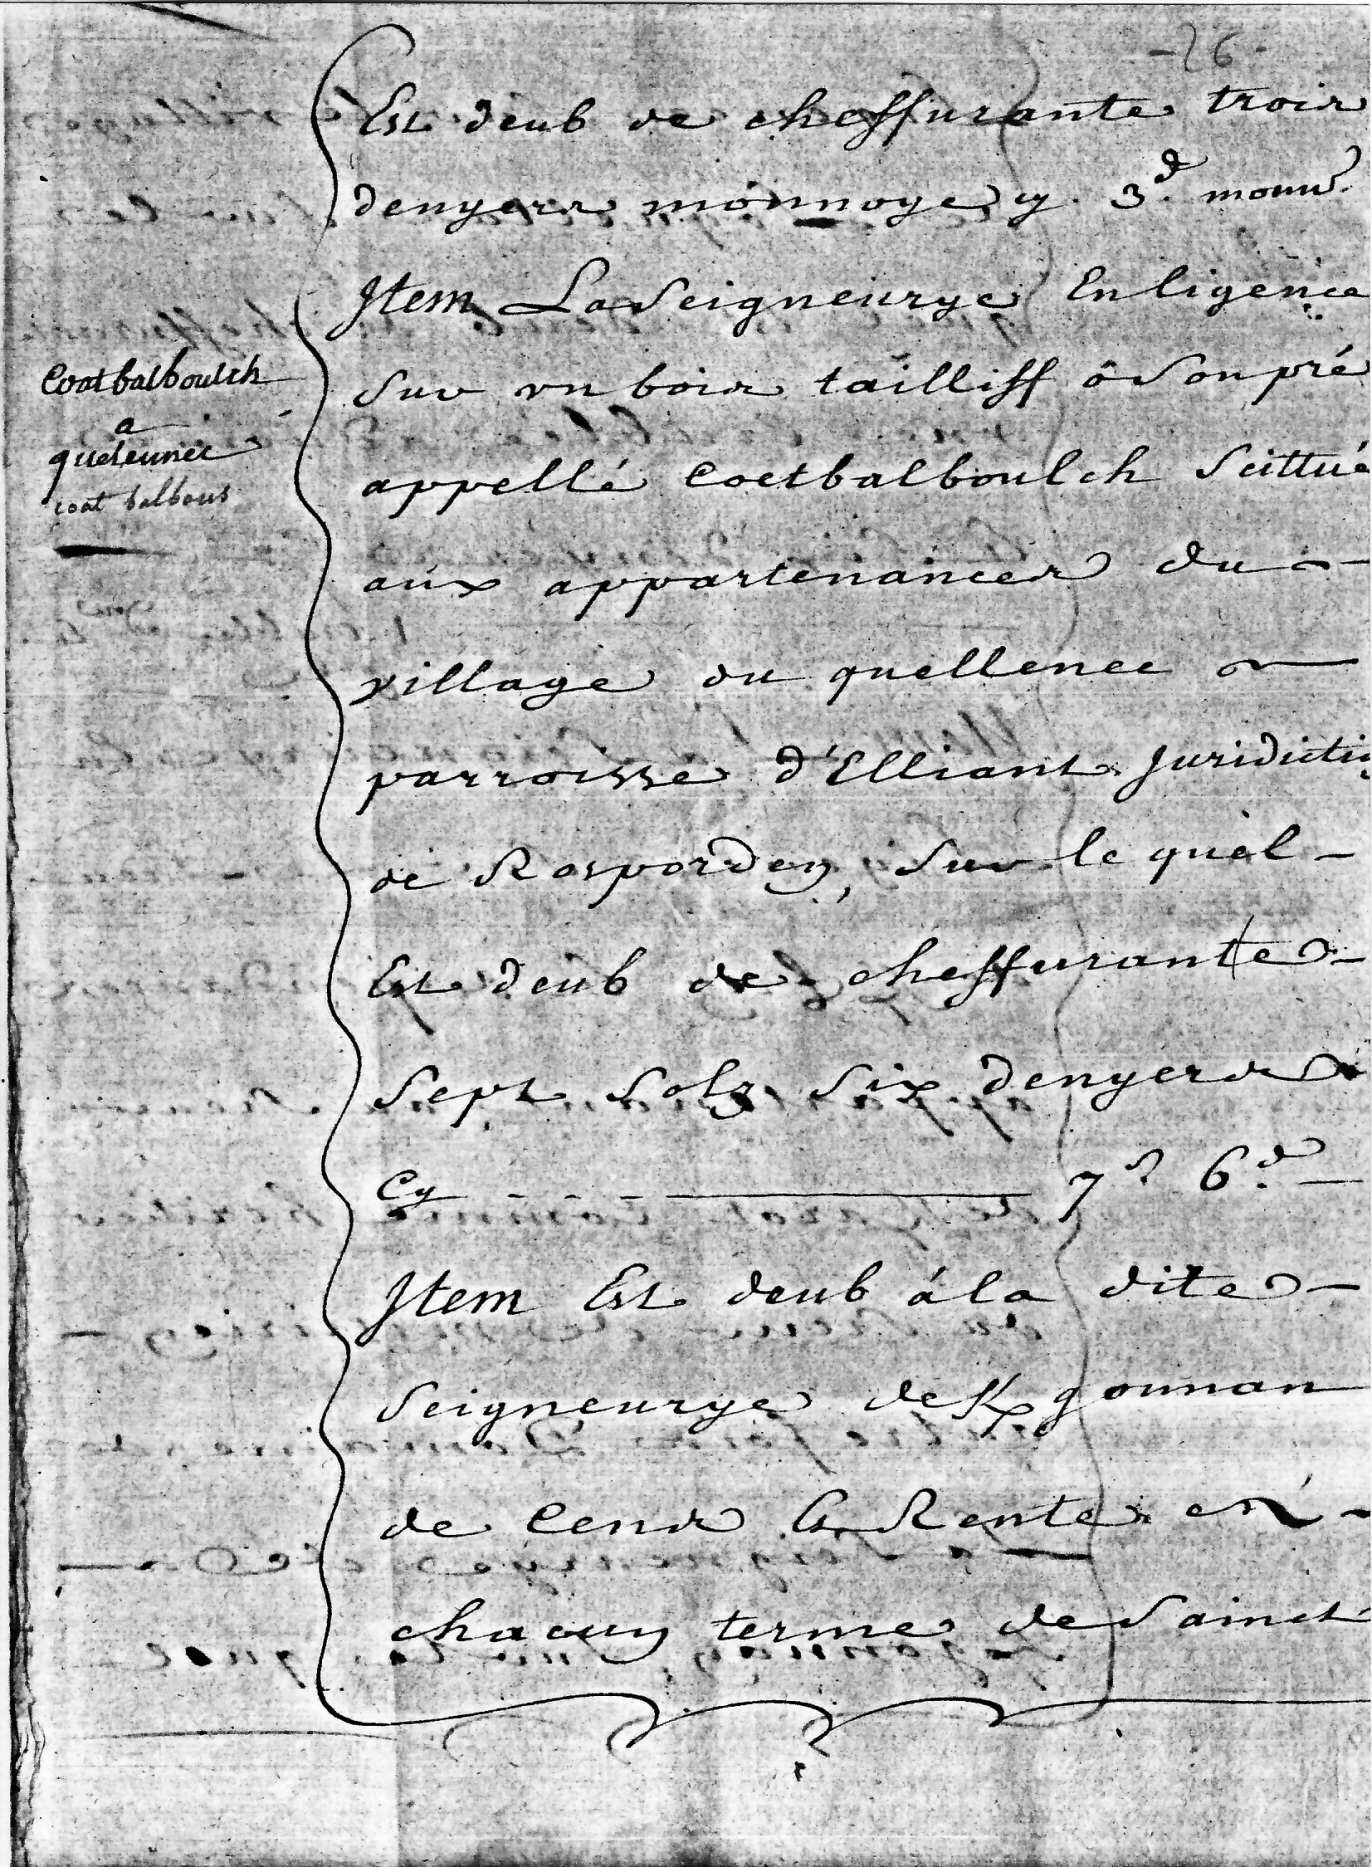 -26-
Est deub de cheffurante trois
denyers monnoye cy. 3d. monn.
Item La Seigneurye En ligence
Sur vn bois tailliff ô Son pré
appellé Coetbalboulch Scittué
aux appartenances du
village du quellenec
parroisse d'Elliant Juridicti
de Rosporden, Sur le quel -
Est deub de cheffurante -
Sept Solz Six denyers
Cy - - - 7s 6d. -
Item Est deub á la dite -
Seigneurye de K/gounan
de Cens & Rente en -
chacun terme de Sainct
Coatbalboulch
a
quelennec
coat balbous